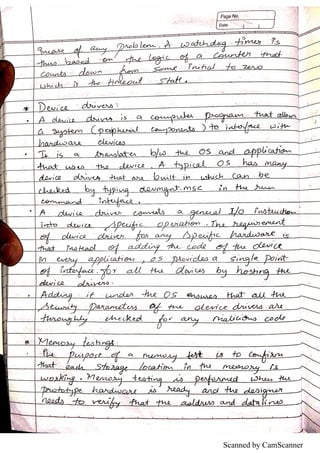 Page No.
Date
because of any problem. A watchdog timer is
thus based on the logic of a counter that
counts down from some initial to zero
which is the timeout state.
* Device drivers:
• A device driver is a computer program that allows
a system (peripheral components) to interface with
hardware devices
• It is a translator b/w the OS and application
that uses the device. A typical OS has many
device drivers that are built in which can be
checked by typing devmgmt.msc in the run
command interface.
• A device driver converts a general I/O instruction
into device specific operation. The requirement
of device driver for any specific hardware is
that instead of adding the code of the device
in every application, OS provides a single point
of interface for all the devices by hosting the
device drivers.
• Adding it under the OS ensures that all the
security parameters of the device drivers are
thoroughly checked for any malicious code
* Memory testing:
The purpose of a memory test is to confirm
that each storage location in the memory is
working. Memory testing is performed when the
prototype hardware is ready and the designer
needs to verify that the address and data lines
Scanned by CamScanner